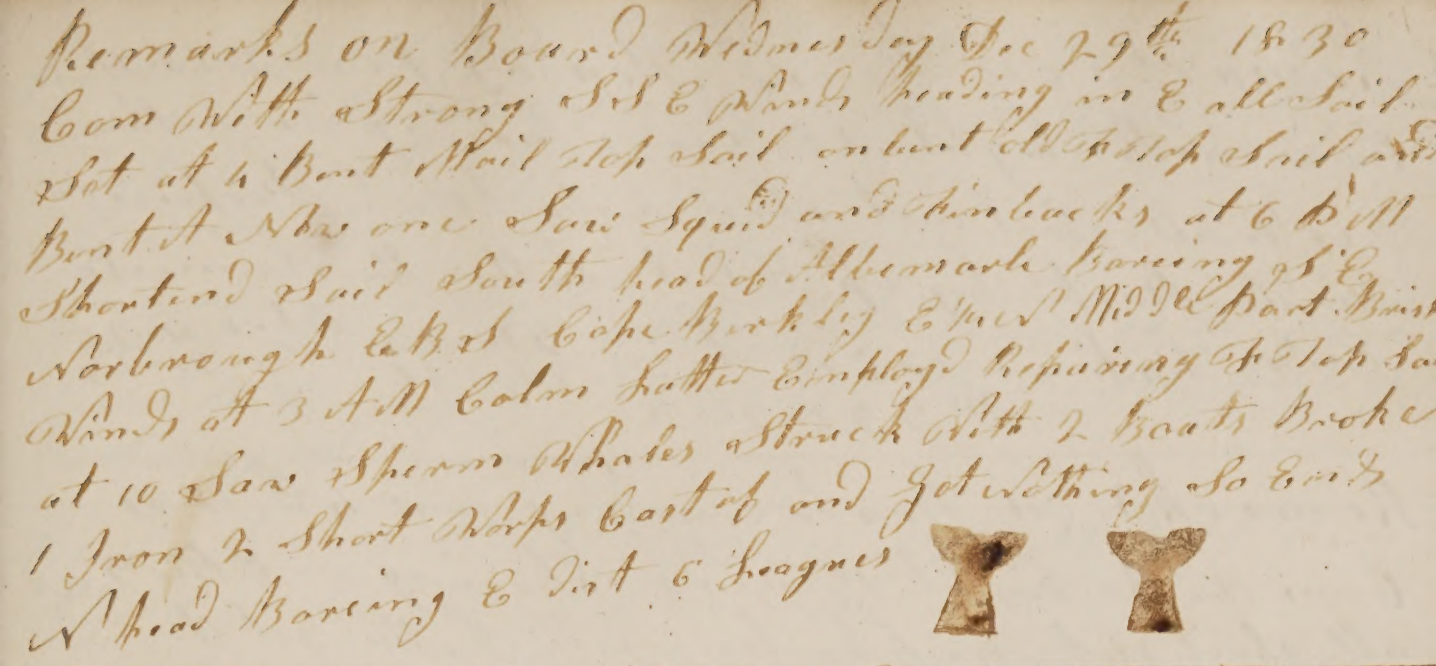 Remarks on Board Wednesday Dec 29th 1830
Com With Strong S S E Winds heading in E all Sail
Set at 4 Bent Mail Top Sail onbent old F Top Sail and
Bent A New one Saw Squid and Finbacks at 6 P M
Shortend Sail South head of Albemarle Bareing S E
Norbrough E B S Cape Berkley Middle Part Brisk
Winds at 3 A M Calm Latter Employd Repairing F Top Sa
at 10 Saw Sperm Whales Struck With 2 Boats Broke
1 Iron 2 Short Warps Cast of and Got Nothing So Ends
N head Bareing E Dist 6 Leagues